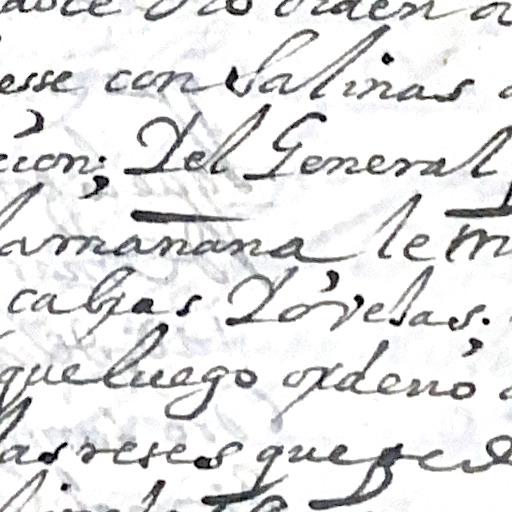 orden
esse con Salinas
cion; Del General
la mañana le m
cabras Y ovejas.
que luego ordenó
las reses que